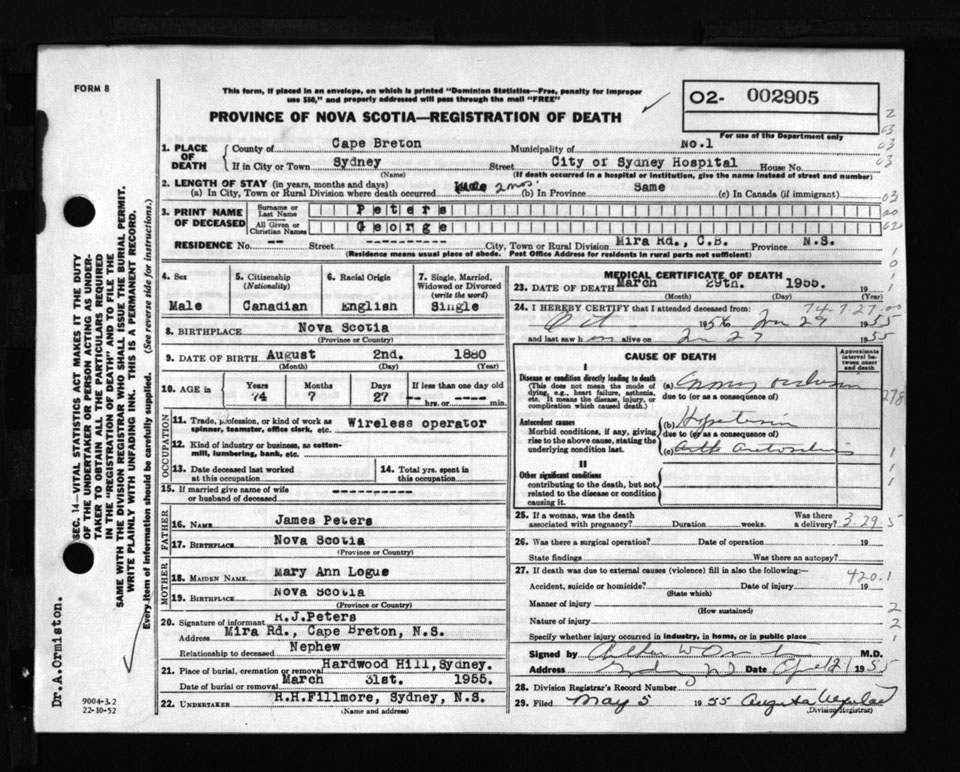 FORM 8
This form, if placed in an envelope, on which is printed "Dominion Statistics—Free, penalty for improper
use $50," and properly addressed will pass through the mail "FREE"
O2- 002905
PROVINCE OF NOVA SCOTIA—REGISTRATION OF DEATH
For use of the Department only
1. PLACE OF DEATH
County of Cape Breton Municipality of No.1
If in City or Town Sydney Street City of Sydney Hospital House No.
(Name) (If death occurred in a hospital or institution, give the name instead of street and number)
2. LENGTH OF STAY (in years, months and days)
(a) In City, Town or Rural Division where death occurred 2 mos. (b) In Province Same (c) In Canada (if immigrant)
3. PRINT NAME OF DECEASED
Surname or Last Name Peters
All Given or Christian Names George
RESIDENCE No. -- Street ---------- City, Town or Rural Division Mira Rd., C.B. Province N.S.
(Residence means usual place of abode. Post Office Address for residents in rural parts not sufficient)
4. Sex
Male
5. Citizenship
(Nationality)
Canadian
6. Racial Origin
English
7. Single, Married, Widowed or Divorced
(write the word)
Single
8. BIRTHPLACE Nova Scotia
(Province or Country)
9. DATE OF BIRTH August 2nd. 1880
(Month) (Day) (Year)
10. AGE in
Years Months Days If less than one day old
74 7 27 -- hrs. or -- min.
OCCUPATION
11. Trade, profession, or kind of work as spinner, teamster, office clerk, etc. Wireless operator
12. Kind of industry or business, as cotton-mill, lumbering, bank, etc.
13. Date deceased last worked at this occupation
14. Total yrs. spent in this occupation
15. If married give name of wife or husband of deceased -----------
FATHER
16. NAME James Peters
17. BIRTHPLACE Nova Scotia
(Province or Country)
MOTHER
18. MAIDEN NAME Mary Ann Logue
19. BIRTHPLACE Nova Scotia
(Province or Country)
20. Signature of informant R.J.Peters
Address Mira Rd., Cape Breton, N.S.
Relationship to deceased Nephew
21. Place of burial, cremation or removal Hardwood Hill, Sydney.
Date of burial or removal March 31st. 1955.
22. UNDERTAKER H.H.Fillmore, Sydney, N.S.
(Name and address)
MEDICAL CERTIFICATE OF DEATH
23. DATE OF DEATH March 29th. 1955. 19
(Month) (Day) (Year)
24. I HEREBY CERTIFY that I attended deceased from: 74.7.27
Oct 27 1955
and last saw h alive on 27 1955
CAUSE OF DEATH
Approximate interval between onset and death
I
Disease or condition directly leading to death
(This does not mean the mode of dying, e.g., heart failure, asthenia, etc. It means the disease, injury, or complication which caused death.)
(a)
due to (or as a consequence of)
Antecedent causes
Morbid conditions, if any, giving rise to the above cause, stating the underlying condition last.
(b)
due to (or as a consequence of)
(c)
II
Other significant conditions
contributing to the death, but not related to the disease or condition causing it.
25. If a woman, was the death associated with pregnancy? Duration weeks. Was there a delivery? 3.29.5
26. Was there a surgical operation? Date of operation 19
State findings Was there an autopsy?
27. If death was due to external causes (violence) fill in also the following:— 420.1
Accident, suicide or homicide? Date of injury 19
(State which)
Manner of injury
(How sustained)
Nature of injury
Specify whether injury occurred in industry, in home, or in public place
Signed by M.D.
Address Date 1955
28. Division Registrar's Record Number
29. Filed May 5 1955
Division Registrar
SEC. 14—VITAL STATISTICS ACT MAKES IT THE DUTY
OF THE UNDERTAKER OR PERSON ACTING AS UNDER-
TAKER TO OBTAIN ALL THE PARTICULARS REQUIRED
IN THE "REGISTRATION OF DEATH" AND TO FILE THE
SAME WITH THE DIVISION REGISTRAR WHO SHALL ISSUE THE BURIAL PERMIT.
WRITE PLAINLY WITH UNFADING INK. THIS IS A PERMANENT RECORD.
Every item of information should be carefully supplied. (See reverse side for instructions.)
Dr.A.Ormiston.
9004-3.2
22-10-52